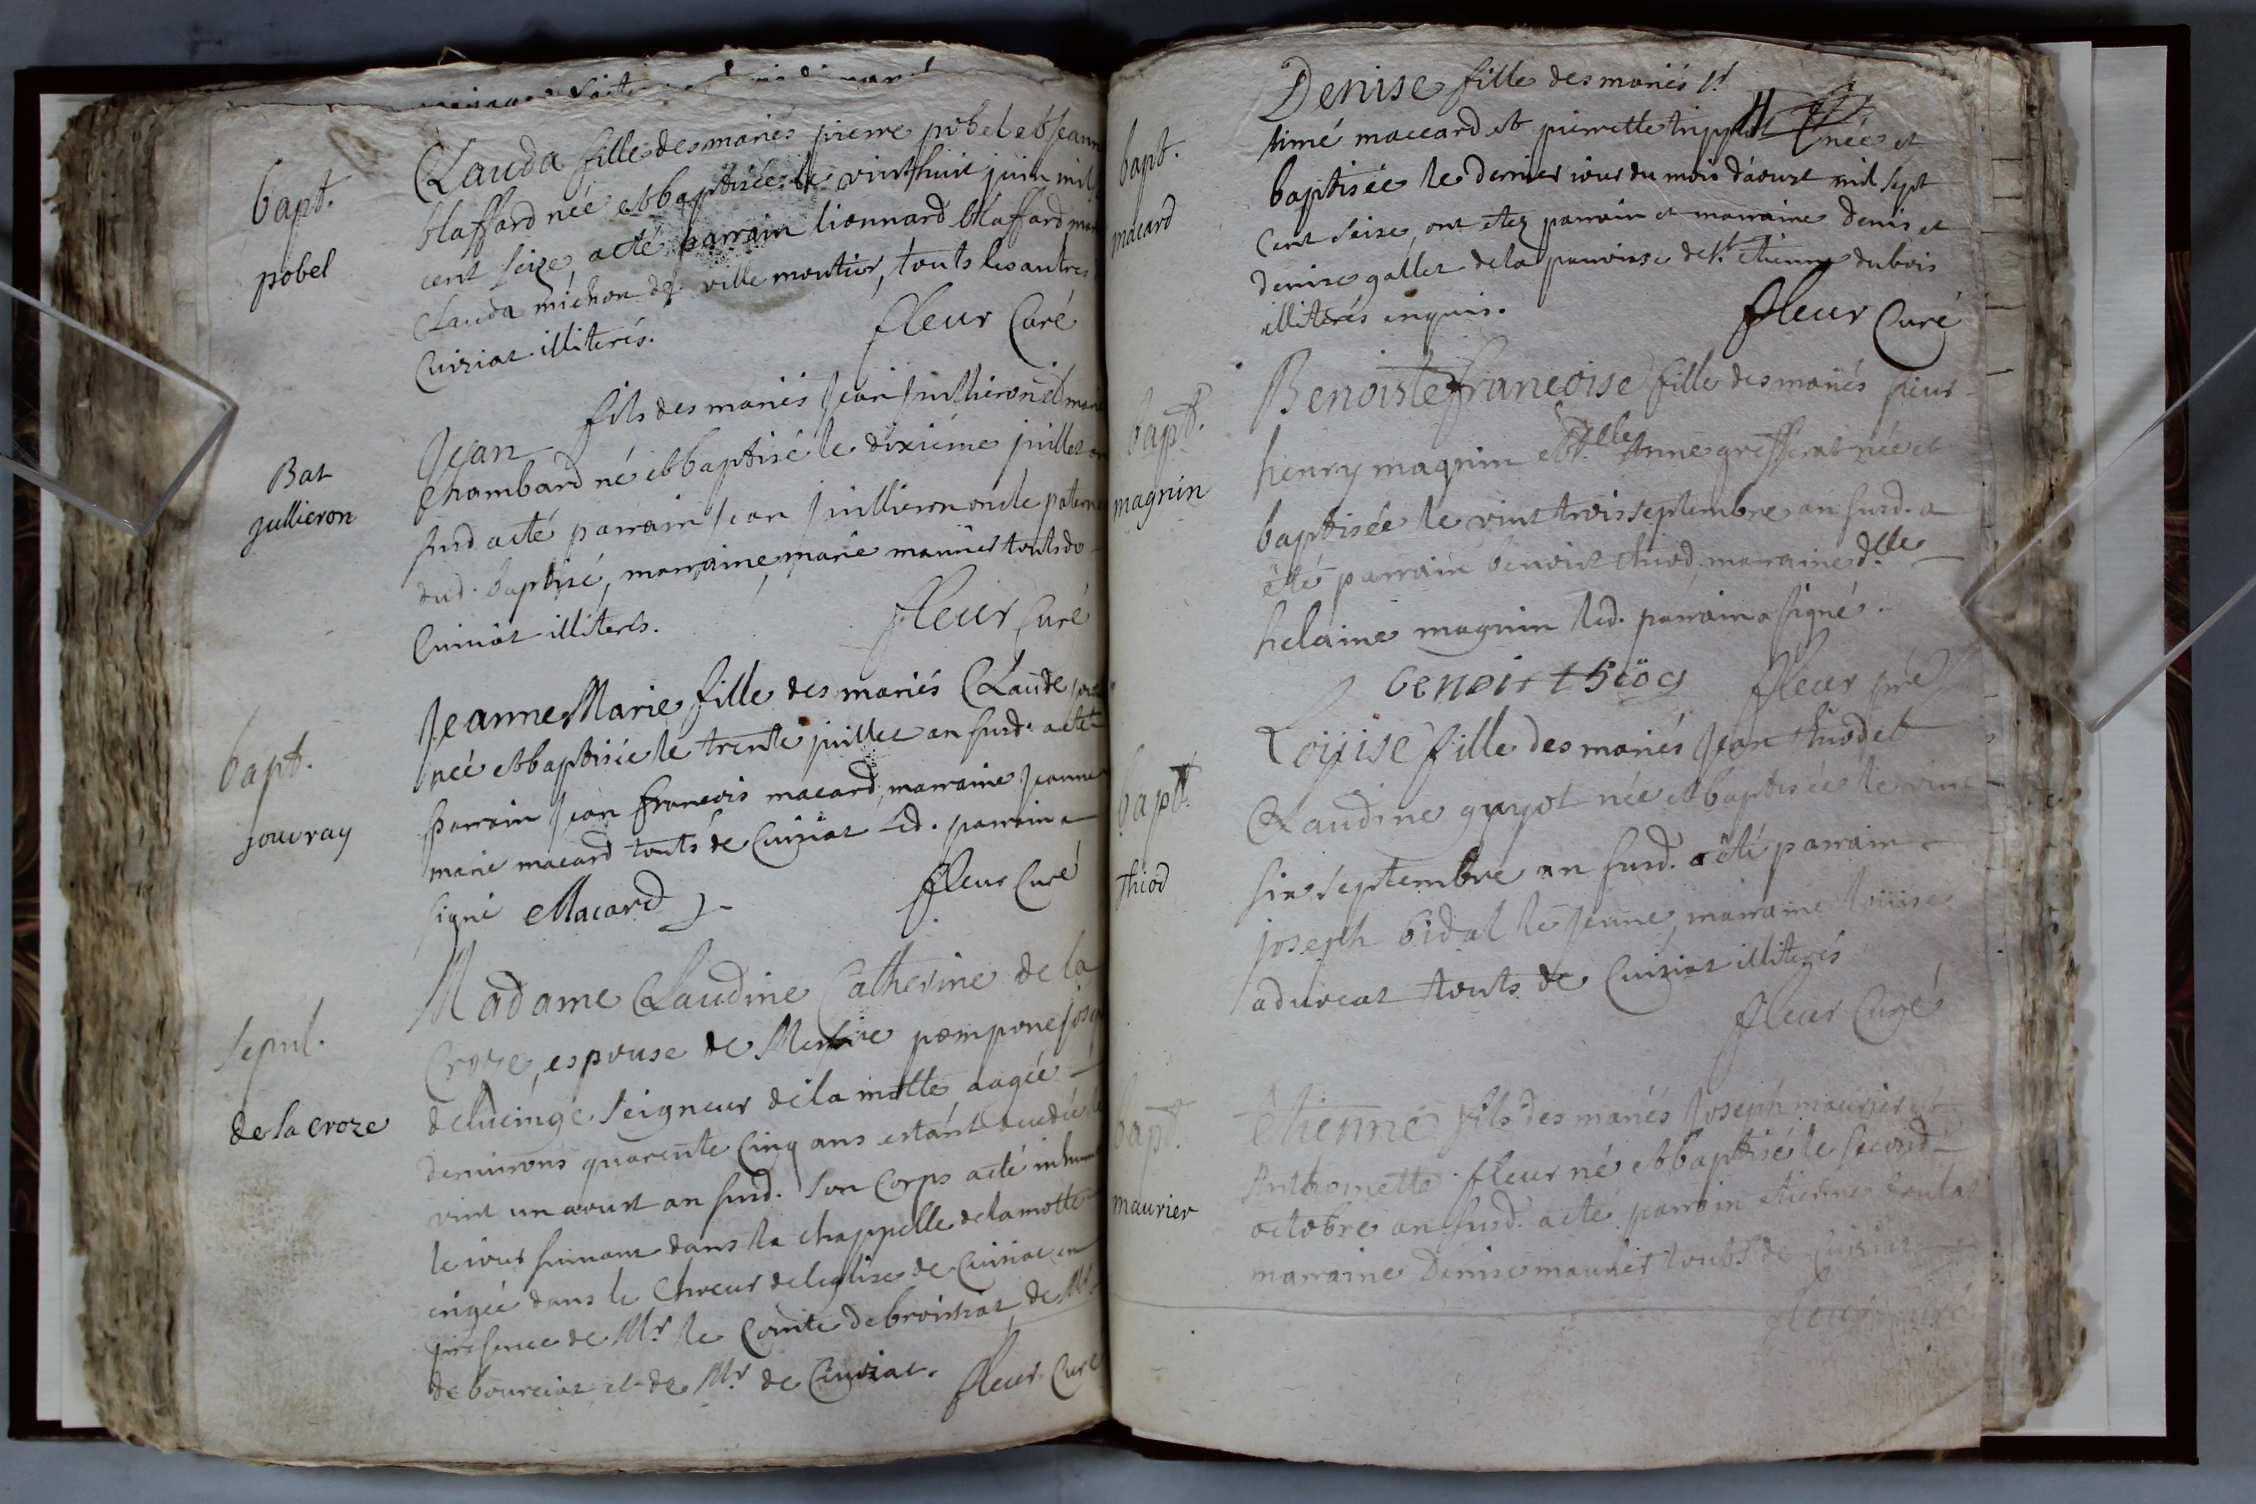 bapt.
pobel
Clauda fille des mariés pierre pobel et Jeann
blaffard née et baptisée le vint huit juin mil
cent seize, a eté parrain lionnard blaffard mar
Clauda michon de ville moutier, touts les autres
Cuiziat illiterés.
fleur Curé
Bat
jullieron
Jean fils des mariés Jean Juillieron et marie
Chambard né et baptisé le dixieme juillet an
susd. a eté parrain Jean Juillieron oncle paterne
dud. baptisé, marraine marie maurier touts de
Cuisiat illiterés.
fleur Curé
bapt.
jouvray
Jeanne Marie fille des mariés Claude
née et baptisée le trente juillet an susd. a eté
parrain Jean francois macard, marraine Jeanne
marie macard touts de Cuiziat Led. parrain a
signé Macard
fleur Curé
sepul.
de la croze
Madame Claudine Catherine de la
Croze, espouse de Messire pompone Jos
de lucinge seigneur de la motte, aagée
d'environs quarente cinq ans estant decedée le
vint un aoust an susd. son Corps a eté inhumé
le iour suivant dans la chappelle de la motte
erigée dans le Choeur de l'eglise de Cuisiat en
presence de Mr. le Comte de broissiat, de Mr.
de bourciat et de Mr. de Cuiziat.
fleur Curé
bapt.
macard
Denise fille des mariés
timé maccard et pierrette née et
baptisée le dernier iour du mois d'aoust mil sept
cent seise, ont etez parrain et marraine denis et
denise gallet de la parroisse de St. etienne dubois
illiterés enquis.
fleur Curé
bapt.
magnin
Benoiste francoise fille des mariés sieur
henry magnin et d.lle Anne grefferat née et
baptisée le vint trois septembre an susd. a
eté parrain benoist thiod, marraine d.lle
helaine magnin led. parrain a signé.
benoit
fleur
bapt.
thiod
Loyise fille des mariés Jean thiod et
Claudine guyot née et baptisée le vint
six septembre an susd. a eté parrain
joseph bidal le jeune, marraine
touts de Cuiziat illiterés
fleur Curé
bapt.
maurier
Etienne fils des mariés Joseph maurier et
Anthoinette fleur né et baptisé le second
octobre an susd. a eté parrain etienne
marraine Denise maurier touts de Cuiziat
fleur curé